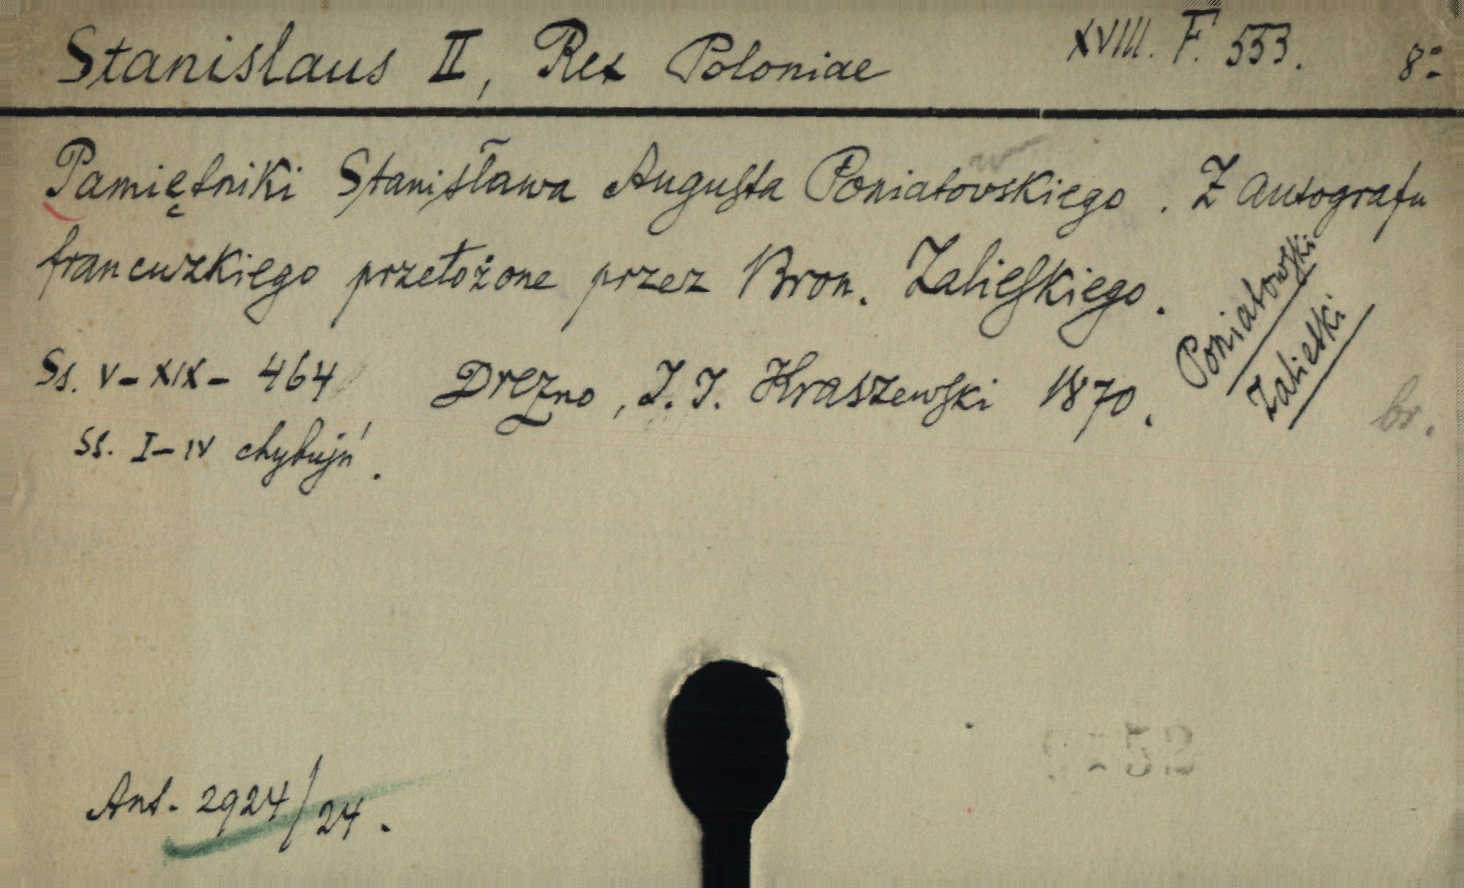 Stanislaus II, Rex Poloniae XVIII. F. 553. 8º
Pamiętniki Stanisława Augusta Poniatovskiego. Z autografu
francuzkiego przełożone przez Bron. Zaleskiego.
Poniatowski
Zaleski
Ss. V-XIX-464 Drezno, J. I. Kraszewski 1870.
br.
SS. I-IV chybují.
Ant. 2924/24.